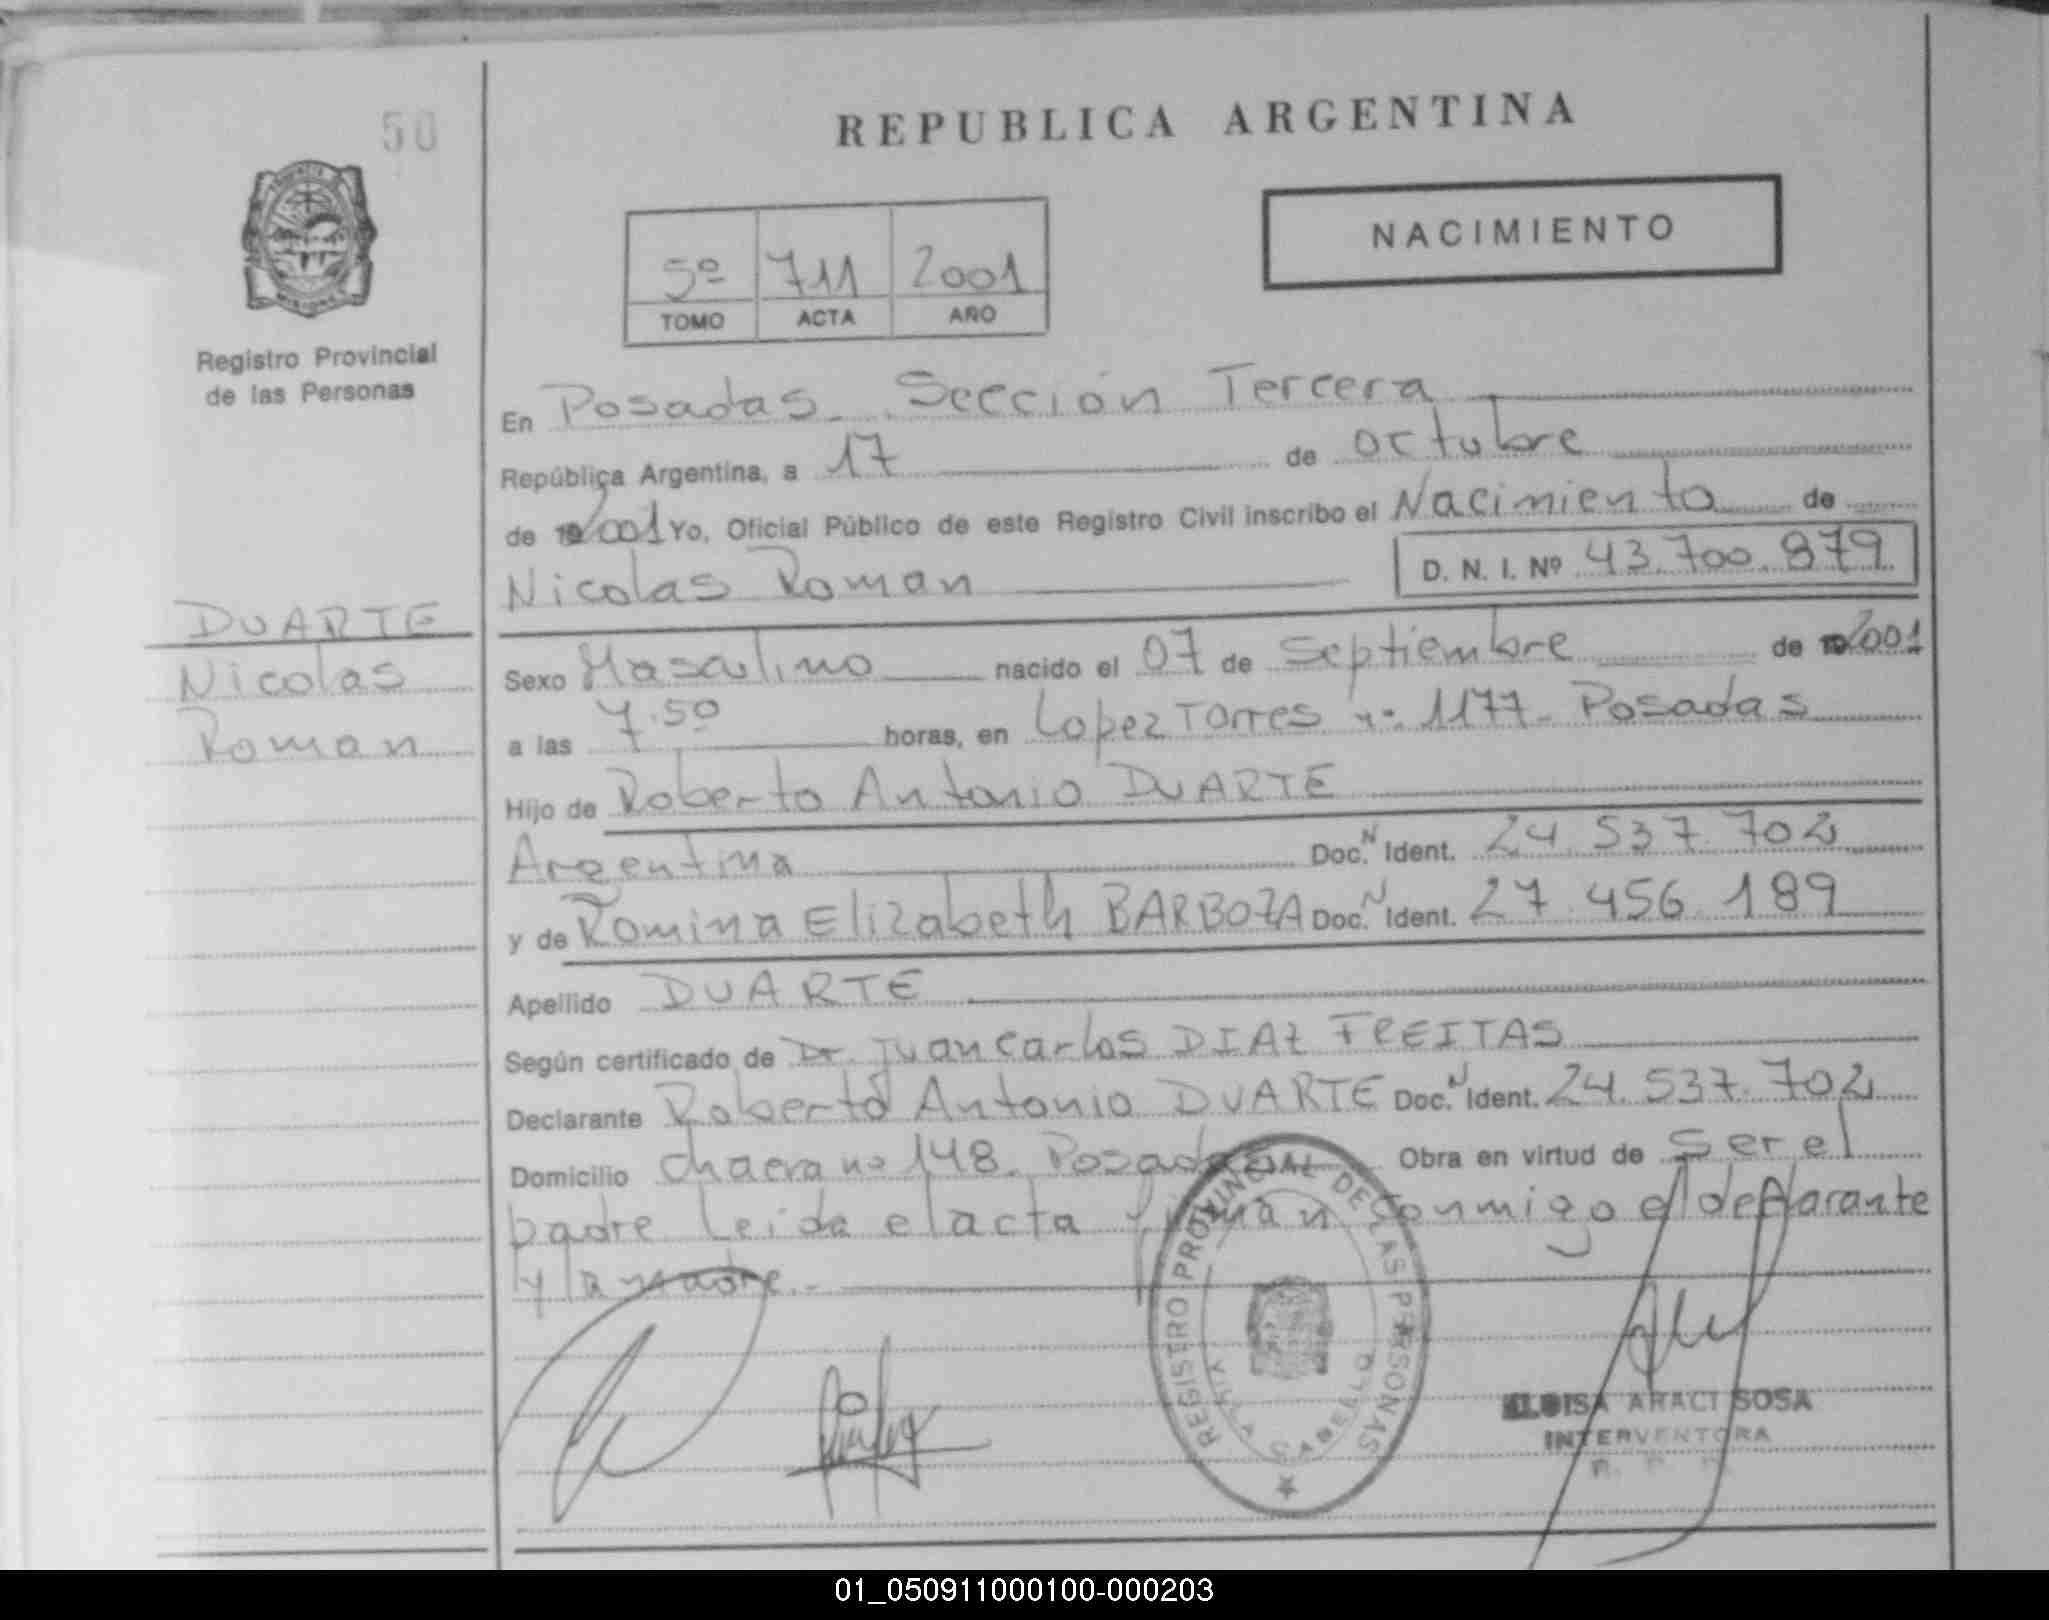 50
REPUBLICA ARGENTINA
NACIMIENTO
5º 711 2001
TOMO ACTA AÑO
Registro Provincial
de las Personas
En Posadas. Sección Tercera
República Argentina, a 17 de octubre
de 2001 Yo, Oficial Público de este Registro Civil inscribo el Nacimiento de
Nicolas Roman D. N. I. Nº 43.700.879
DUARTE
Nicolas
Roman
Sexo Masculino nacido el 07 de Septiembre de 2001
a las 7.50 horas, en Lopez Torres nº 1177 - Posadas
Hijo de Roberto Antonio DUARTE
Argentina Doc. N Ident. 24.537.702
y de Romina Elizabeth BARBOZA Doc. N Ident. 27.456.189
Apellido DUARTE
Según certificado de Dr. Juan Carlos DIAZ FREITAS
Declarante Roberto Antonio DUARTE Doc. N Ident. 24.537.702
Domicilio chacra nº 148. Posadas Obra en virtud de ser el
padre Leida el acta firman conmigo el declarante
y la madre.-
REGISTRO PROVINCIAL DE LAS PERSONAS
VILLA CABELLO
ELOISA ARACI SOSA
INTERVENTORA
R. P. P.
01_050911000100-000203